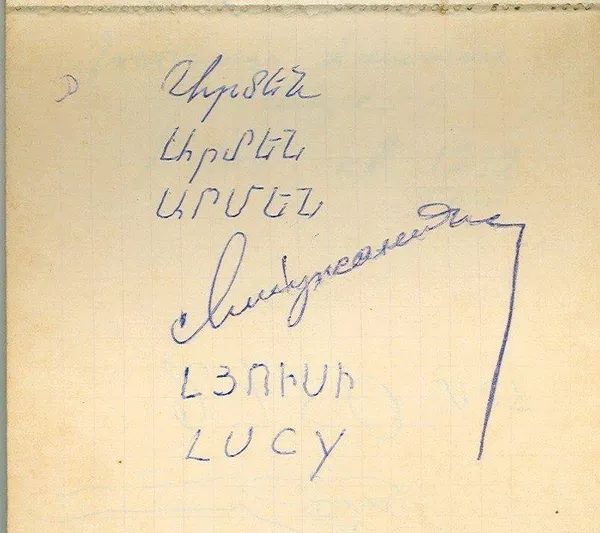 D
Արմեն
Արմեն
ԱՐՄԵՆ
ԼՅՈՒՍԻ
LUCY